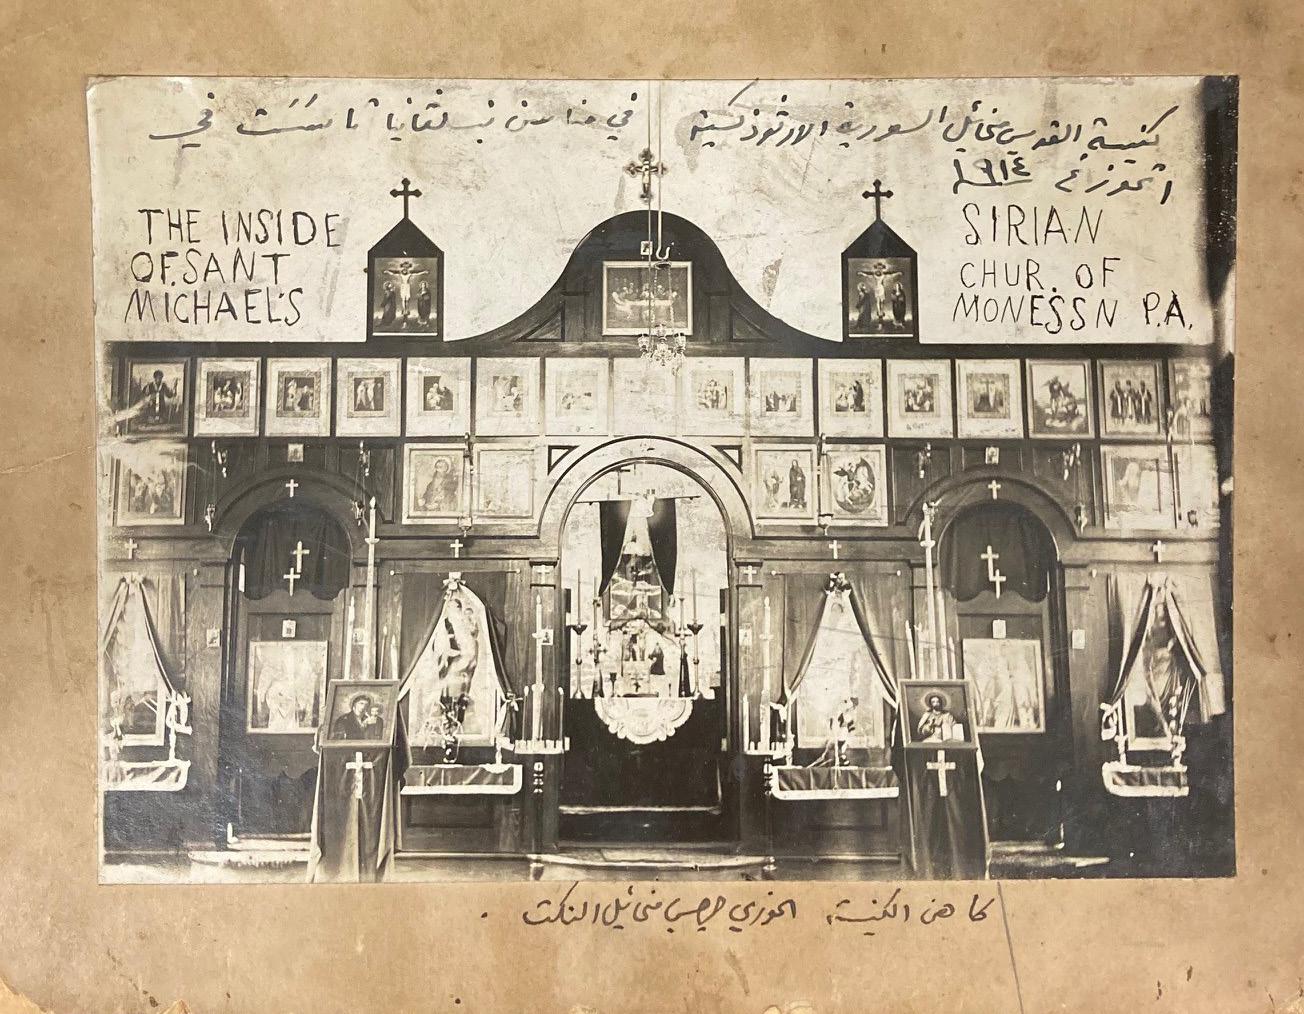 كنيسة القديس مخائيل السورية الارثوذكسية في مناسن بنسلفانيا تاسَسَت في
١ تموز ١٩١٤
THE INSIDE
OF. SANT
MICHAEL'S
SIRIAN
CHUR. OF
MONESSN P.A.
كاهن الكنيسة، الخوري جرجس مخائيل